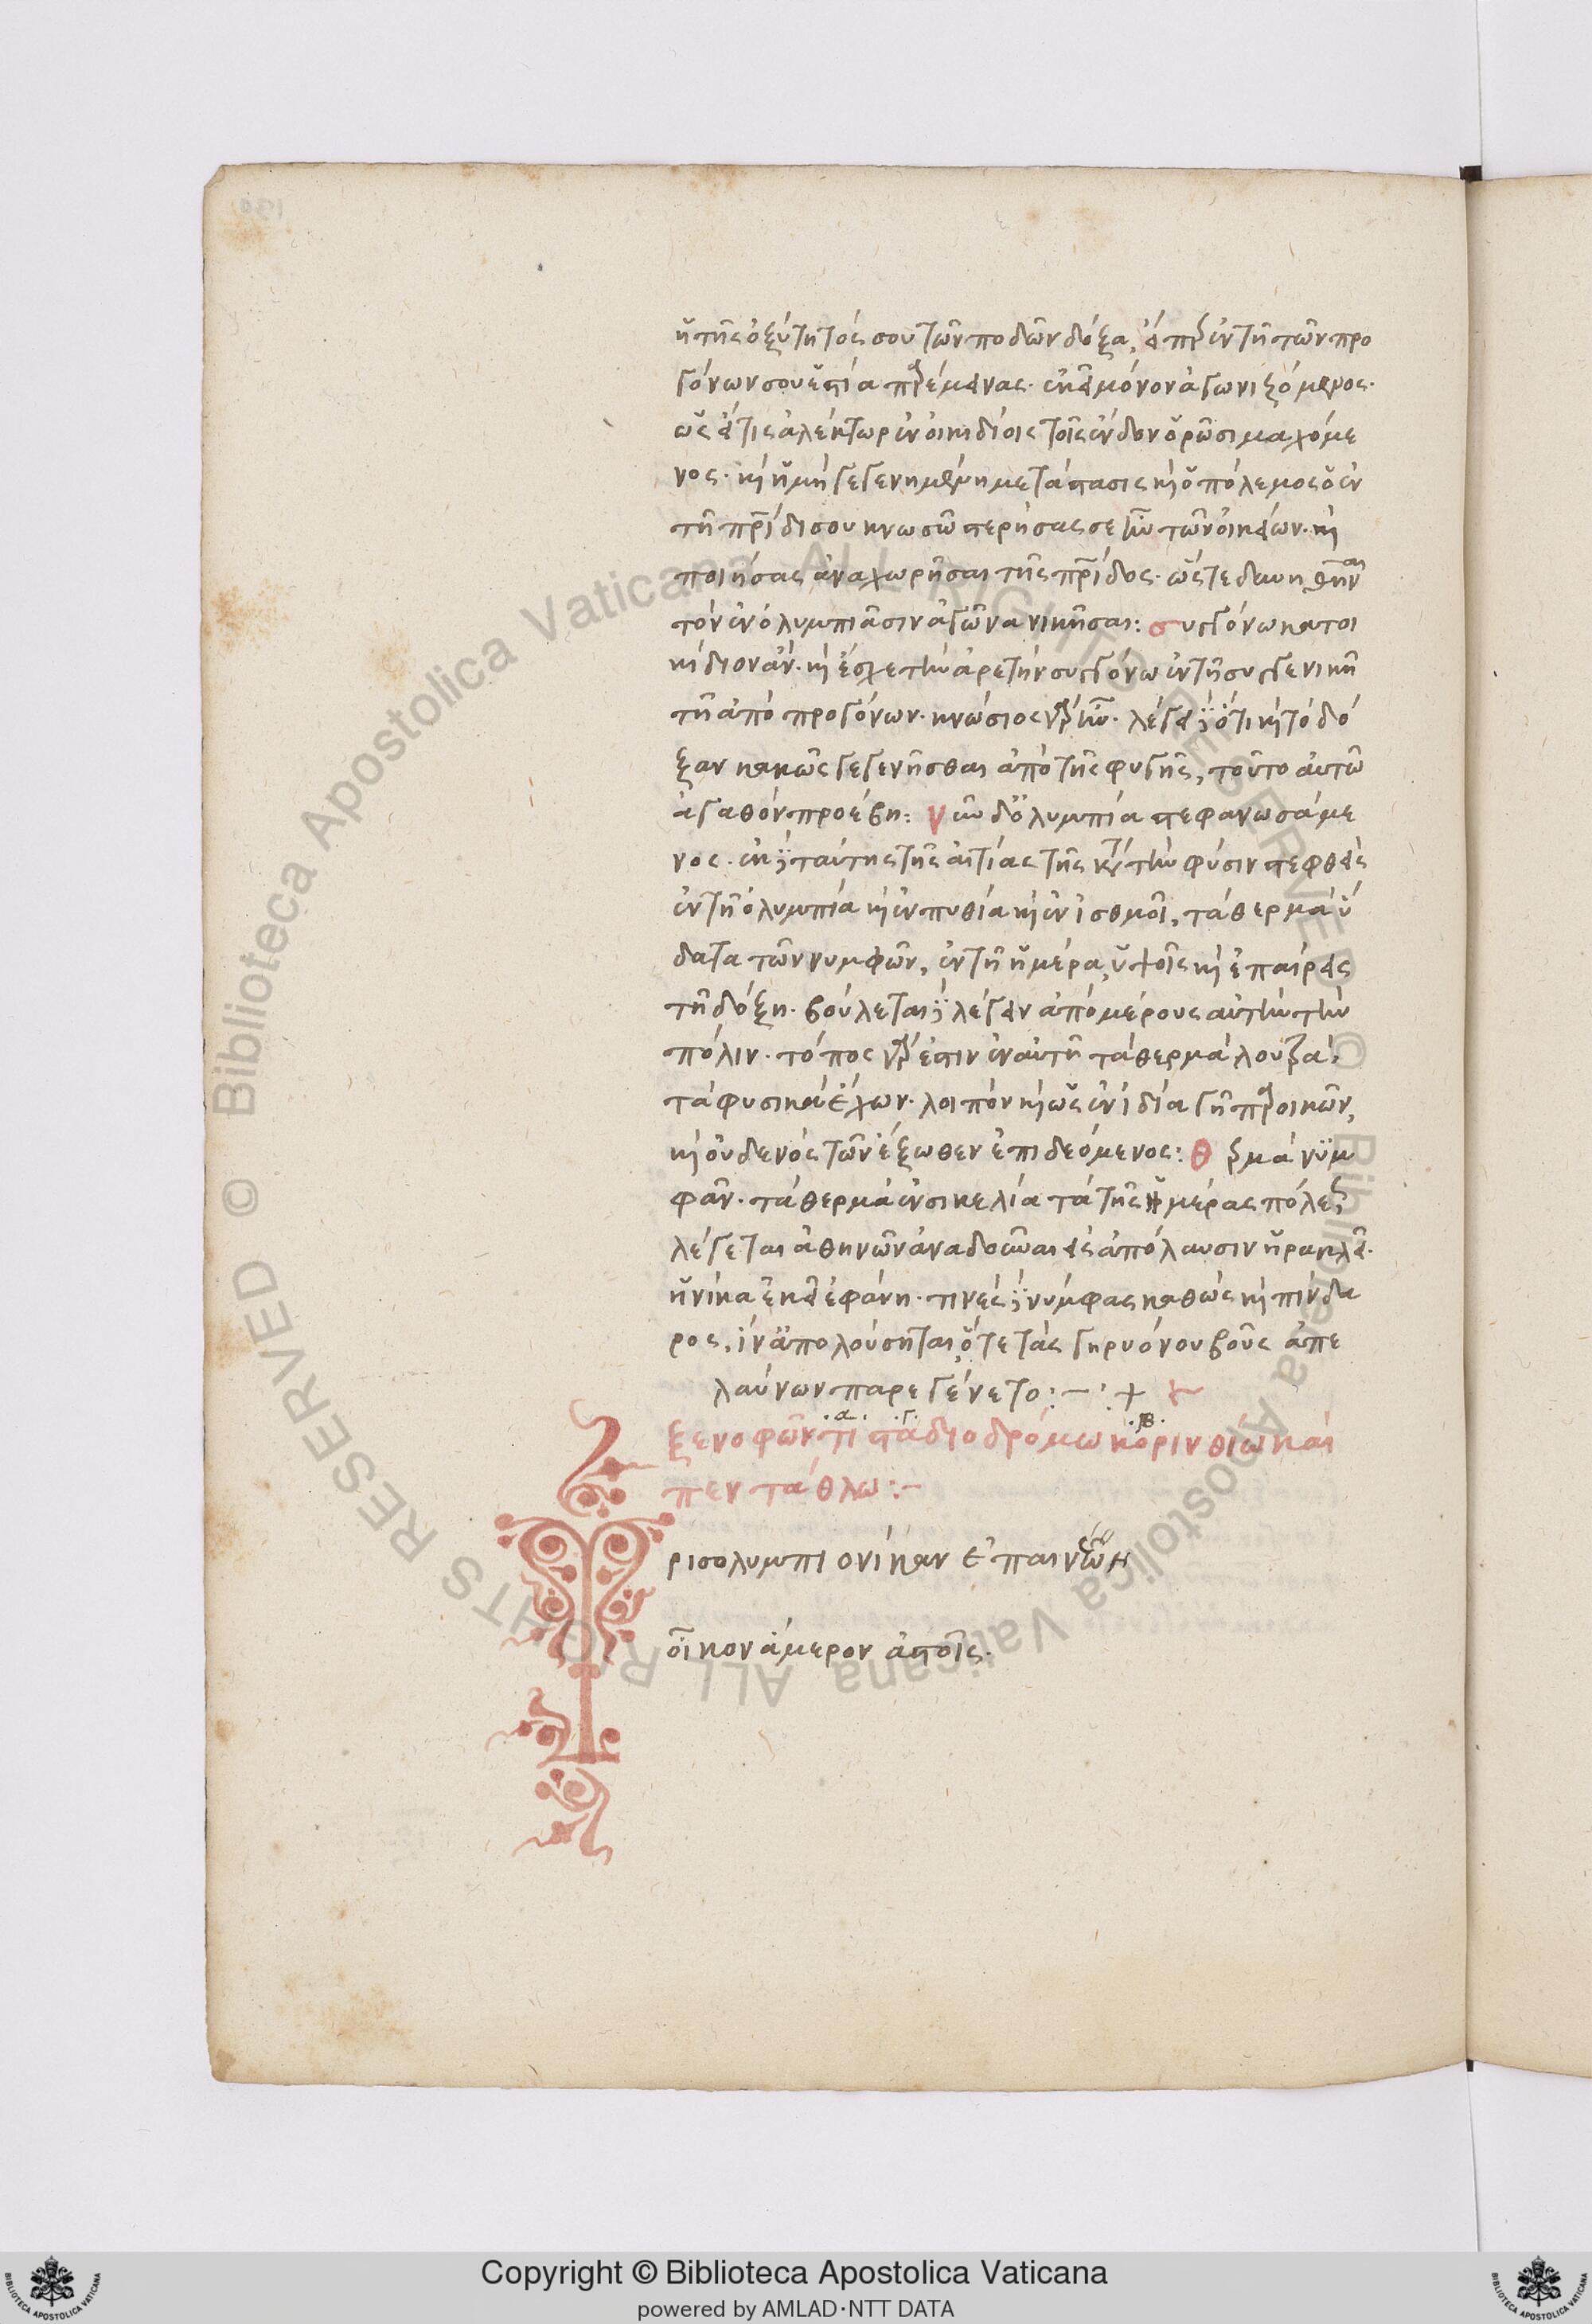 ἡ τῆς ὀξύτητός σου τῶν ποδῶν δόξα, εἴπερ ἐν τῇ τῶν προ
γόνων σου ἑστία παρέμεινας. ἐκεῖ μόνον ἀγωνιζόμενος.
ὡς εἴ τις ἀλέκτωρ ἐν οἰκιδίοις τοῖς ἔνδον ὁρῶσι μαχόμε
νος. καὶ ἡ μὴ γεγενημένη μετάστασις καὶ ὁ πόλεμος ὁ ἐν
τῇ πατρίδι σου κνωσῶ στερήσας σε τῶν οἰκείων. καὶ
ποιήσας ἀναχωρῆσαι τῆς πατρίδος. ὥστε
τὸν ἐν ὀλυμπιᾶσιν ἀγῶνα νικῆσαι: συγγόνω κατοι
κίδιον ἂν. καὶ ἔσχε τὴν ἀρετὴν συγγόνω ἐν τῇ συγγενικῆ
τῇ ἀπὸ προγόνων. κνώσιος γὰρ ἦν. λέγει δὲ ὅτι καὶ τὸ δό
ξαν κακῶς γεγενῆσθαι ἀπὸ τῆς φυγῆς, τοῦτο αὐτῶ
ἀγαθὸν προέβη: νῦν δ' ὀλυμπία στεφανωσάμε
νος. ἐκ δὲ ταύτης τῆς αἰτίας τῆς κατὰ τὴν φύσιν στεφθεὶς
ἐν τῇ ὀλυμπία καὶ ἐν πυθία καὶ ἐν ἰσθμοῖ, τὰ θερμὰ ὕ
δατα τῶν νυμφῶν, ἐν τῇ ἡμέρα ὑψοῖς καὶ ἐπαίρεις
τῇ δόξη. βούλεται δὲ λέγειν ἀπὸ μέρους αὐτὴν τὴν
πόλιν. τόπος γάρ ἐστιν ἐν αὐτῇ τὰ θερμὰ λουτρὰ,
τὰ φυσικὰ ἔχων. λοιπὸν καὶ ὡς ἐν ἰδία γῇ παροικῶν,
καὶ οὐδενὸς τῶν ἔξωθεν ἐπιδεόμενος: θερμὰ νυμ
φᾶν. τὰ θερμὰ ἐν σικελία τὰ τῆς ἡμέρας πόλεως
λέγεται ἀθηνῶν ἀναδοῦναι εἰς ἀπόλαυσιν ἡρακλεῖ.
ἡνίκα ἐκεῖ ἐφάνη. τινὲς δὲ νύμφας καθὼς καὶ πίνδα
ρος, ἵν' ἀπολούσηται, ὅτε τὰς γηρυόνου βοῦς ἀπε
λαύνων παρεγένετο:– : +
ξενοφῶντι σταδιοδρόμω κορινθίω καὶ
.α. .γ. .β.
πεντάθλω:–
Τρισολυμπιονίκαν ἐπαινέων
οἶκον ἅμερον ἀστοῖς.